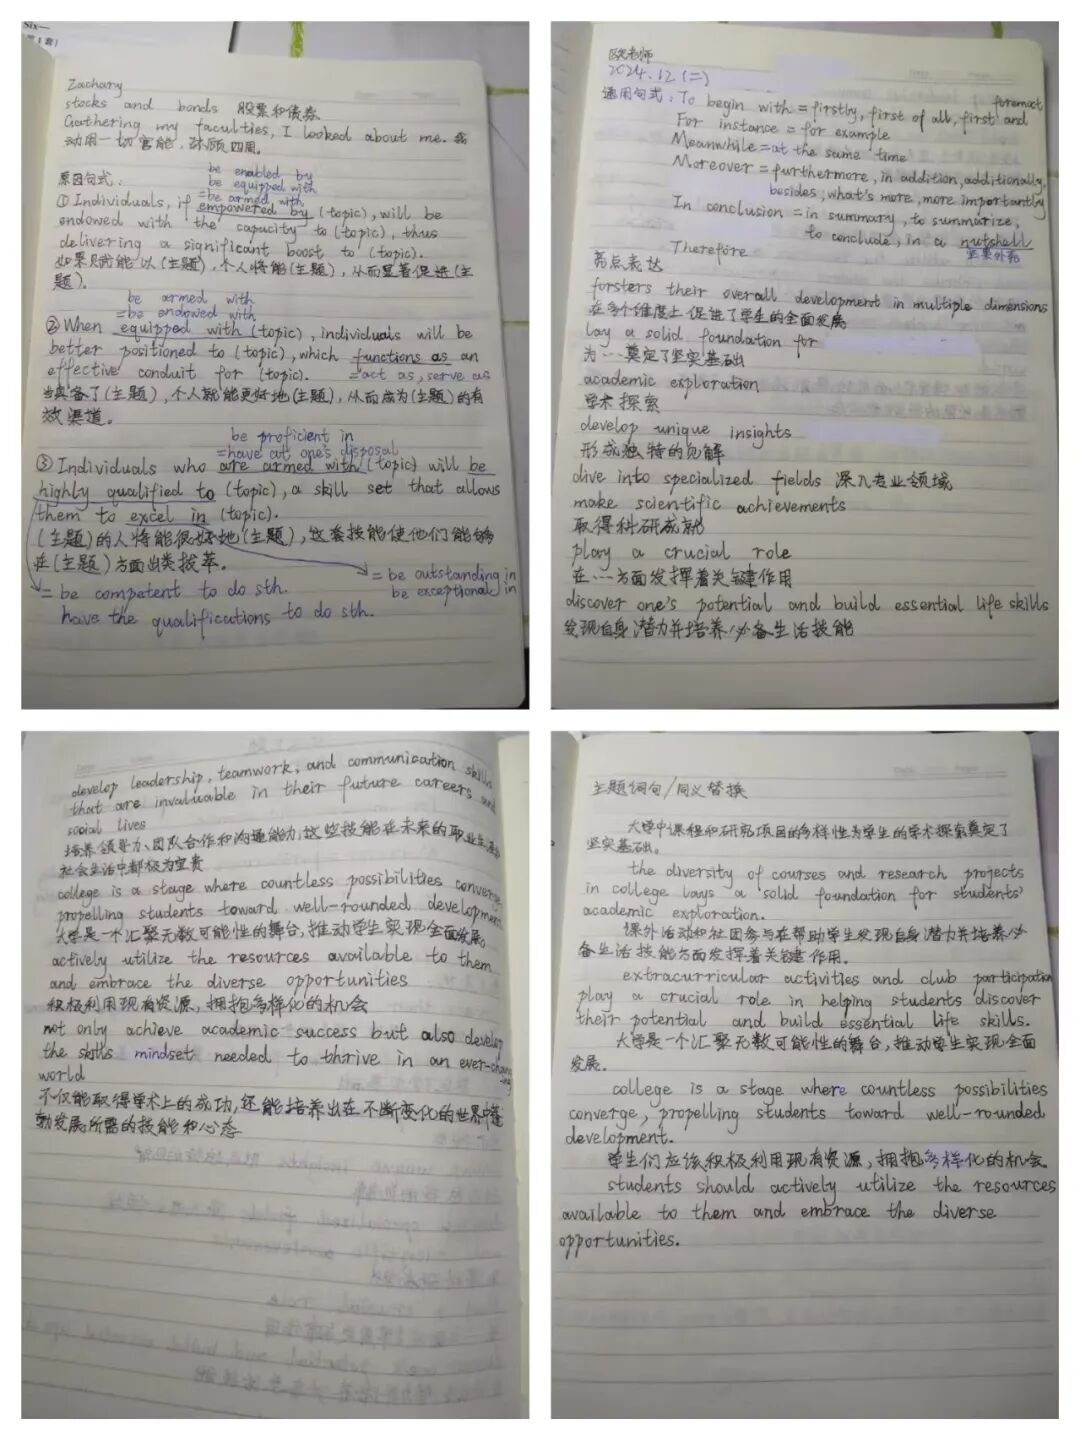 Six—
第1套)
Zachary
stocks and bonds 股票和债券
Gathering my faculties, I looked about me. 我
动用一切官能,环顾四周。
原因句式:
be enabled by
be equipped with
=be armed with
①Individuals, if empowered by (topic), will be
endowed with the capacity to (topic), thus
delivering a significant boost to (topic).
如果赋能以(主题),个人将能(主题),从而显著促进(主
题)。
be armed with
=be endowed with
②When equipped with (topic), individuals will be
better positioned to (topic), which functions as an
effective conduit for (topic). =act as, serve as
当具备了(主题),个人就能更好地(主题),从而成为(主题)的有
效渠道。
be proficient in
=have at one's disposal
③Individuals who are armed with (topic) will be
highly qualified to (topic), a skill set that allows
them to excel in (topic).
(主题)的人将能很好地(主题),这套技能使他们能够
在(主题)方面出类拔萃。
=be outstanding in
be exceptional in
=be competent to do sth.
have the qualifications to do sth.
欧老师
2024.12(二)
通用句式:To begin with=firstly, first of all, first and foremost
For instance=for example
Meanwhile=at the same time
Moreover=furthermore, in addition, additionally,
besides, what's more, more importantly
In conclusion=in summary, to summarize,
to conclude, in a nutshell
坚果外壳
Therefore
亮点表达
forsters their overall development in multiple dimensions
在多个维度上促进了学生的全面发展
lay a solid foundation for
为…奠定了坚实基础
academic exploration
学术探索
develop unique insights
形成独特的见解
dive into specialized fields 深入专业领域
make scientific achievements
取得科研成就
play a crucial role
在…方面发挥着关键作用
discover one's potential and build essential life skills
发现自身潜力并培养必备生活技能
develop leadership, teamwork, and communication skills
that are invaluable in their future careers and
social lives
培养领导力、团队合作和沟通能力,这些技能在未来的职业生涯和
社会生活中都极为宝贵
college is a stage where countless possibilities converge,
propelling students toward well-rounded development
大学是一个汇聚无数可能性的舞台,推动学生实现全面发展。
actively utilize the resources available to them
and embrace the diverse opportunities
积极利用现有资源,拥抱多样化的机会
not only achieve academic success but also develop
the skills mindset needed to thrive in an ever-changing
world
不仅能取得学术上的成功,还能培养出在不断变化的世界中蓬
勃发展所需的技能和心态
主题词句/同义替换
大学中课程和研究项目的多样性为学生的学术探索奠定了
坚实基础。
the diversity of courses and research projects
in college lays a solid foundation for students'
academic exploration.
课外活动和社团参与在帮助学生发现自身潜力并培养必
备生活技能方面发挥着关键作用。
extracurricular activities and club participation
play a crucial role in helping students discover
their potential and build essential life skills.
大学是一个汇聚无数可能性的舞台,推动学生实现全面
发展。
college is a stage where countless possibilities
converge, propelling students toward well-rounded
development.
学生们应该积极利用现有资源,拥抱多样化的机会
students should actively utilize the resources
available to them and embrace the diverse
opportunities.